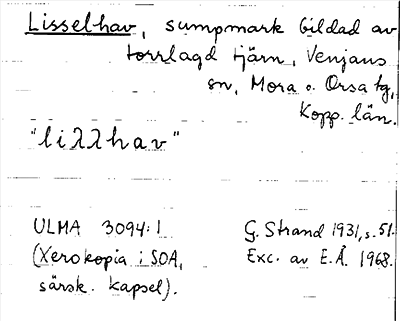 Lisselhav, sumpmark bildad av
torrlagd tjärn, Venjans
sn, Mora o. Orsa tg,
Kopp. län.
"liλλhav"
ULMA 3094:1
(Xerokopia i SOA,
särsk. kapsel).
G. Strand 1931, s. 51.
Exc. av E.Å. 1968.